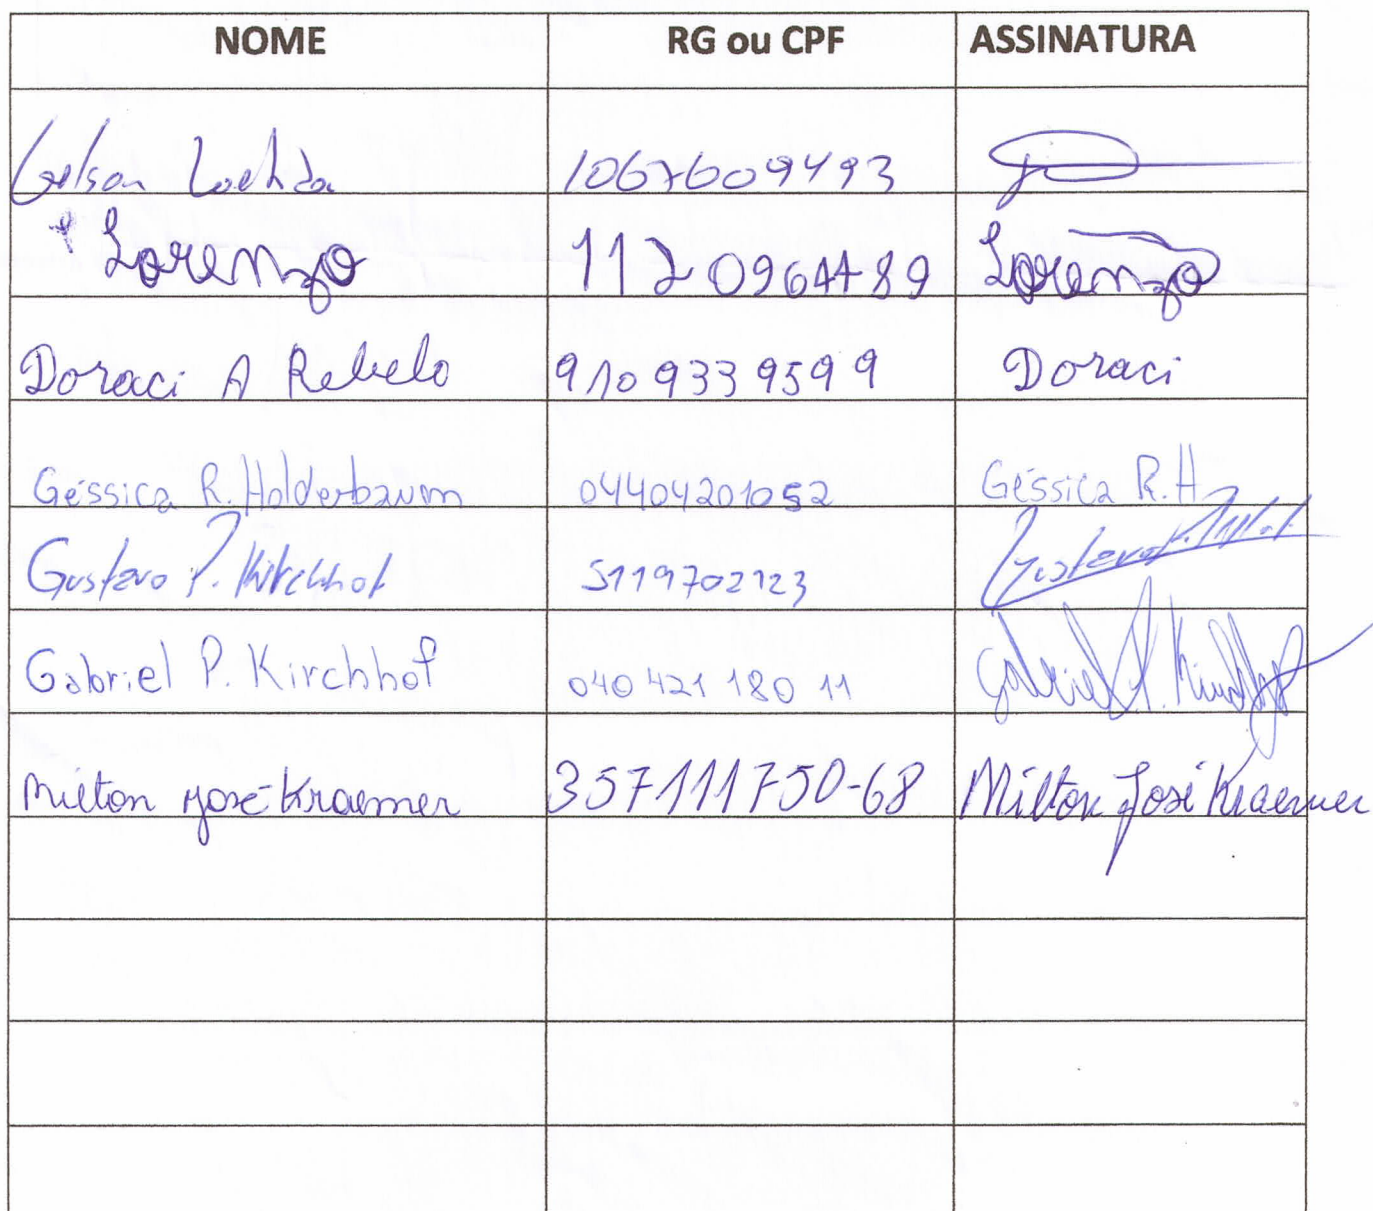 NOME RG ou CPF ASSINATURA
Gelson 1067609493
Lorenzo 1120964489 Lorenzo
Doraci A Rebelo 9109339599 Doraci
Géssica R. Holderbaum 04404201052 Géssica R.H
Gustavo P. Kirchhof 5119702123 Gustavo P.
Gabriel P. Kirchhof 040 421 180 11 Gabriel P. Kirchhof
Milton José Kraemer 357111750-68 Milton José Kraemer